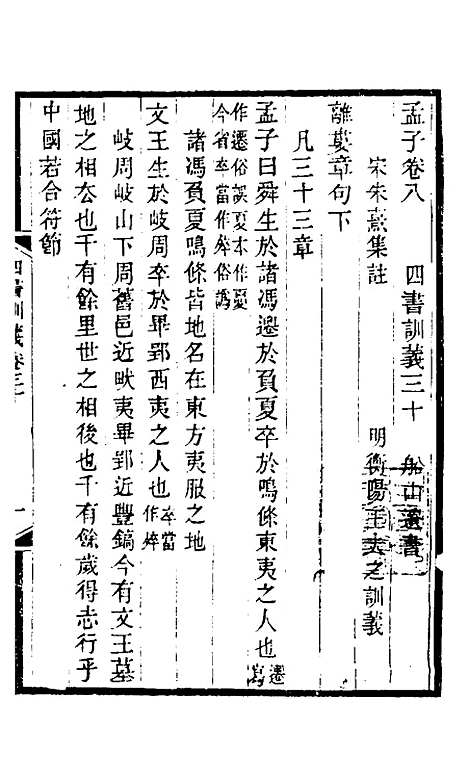 孟子卷八　四書訓義三十　船山遺書
宋朱熹集註　明衡陽王夫之訓義
離婁章句下
凡三十三章
孟子曰舜生於諸馮遷於負夏卒於鳴條東夷之人也遷寫
作遷俗誤夏本作夓
今省卒當作㱹俗譌
諸馮負夏鳴條皆地名在東方夷服之地
文王生於岐周卒於畢郢西夷之人也卒當作㱹
岐周岐山下周舊邑近畎夷畢郢近豐鎬今有文王墓
地之相去也千有餘里世之相後也千有餘歲得志行乎
中國若合符節
四書訓義卷三
一